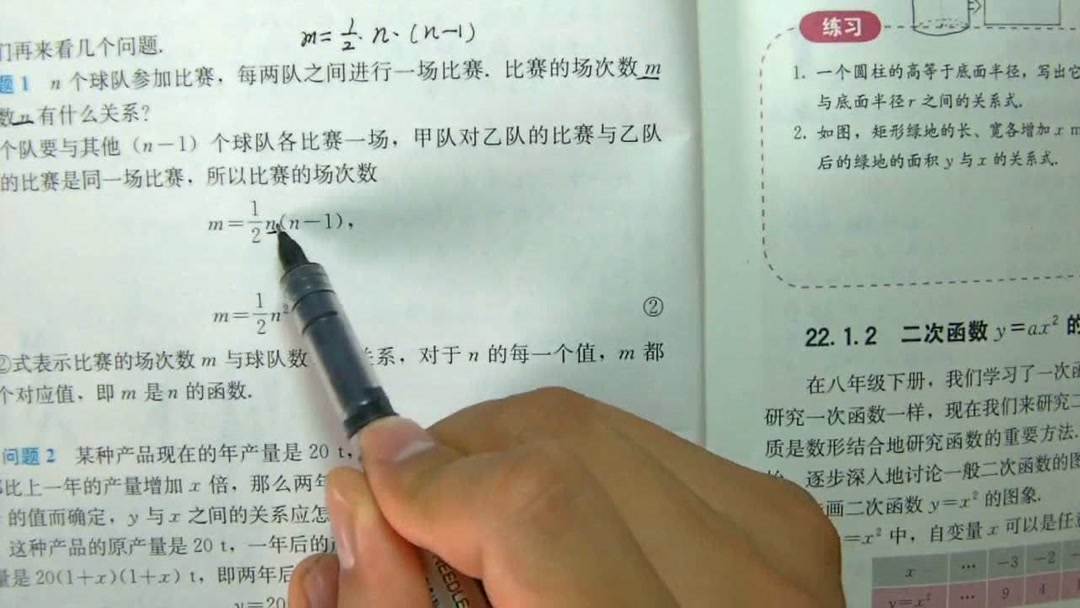 们再来看几个问题.
m=1/2·n·(n-1)
题1 n个球队参加比赛，每两队之间进行一场比赛．比赛的场次数m
数n有什么关系？
个队要与其他（n－1）个球队各比赛一场，甲队对乙队的比赛与乙队
的比赛是同一场比赛．所以比赛的场次数
m=1/2n(n-1),
m=1/2n²
②
②式表示比赛的场次数m与球队数 关系，对于n的每一个值，m都
个对应值，即m是n的函数．
问题2 某种产品现在的年产量是20 t，
都比上一年的产量增加x倍，那么两年
的值而确定，y与x之间的关系应怎
这种产品的原产量是20 t，一年后的
量是20(1+x)(1+x) t，即两年后
y=20
NEEDLE
练习
1. 一个圆柱的高等于底面半径，写出它
与底面半径r之间的关系式．
2. 如图，矩形绿地的长、宽各增加x m
后的绿地的面积y与x的关系式．
22.1.2 二次函数y=ax²的
在八年级下册，我们学习了一次函
研究一次函数一样，现在我们来研究二
质是数形结合地研究函数的重要方法．
逐步深入地讨论一般二次函数的图
画二次函数y=x²的图象．
=x²中，自变量x可以是任意
x … －3 －2
y=x² … 9 4